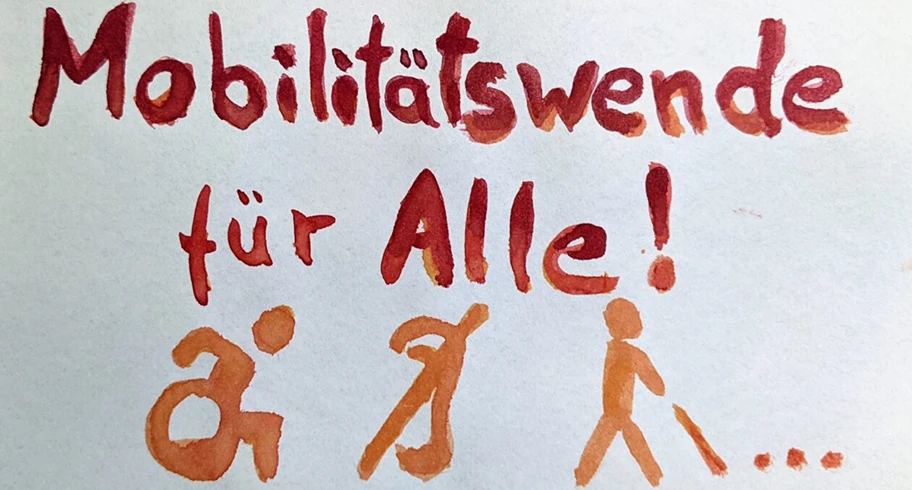 Mobilitätswende
für Alle!
...